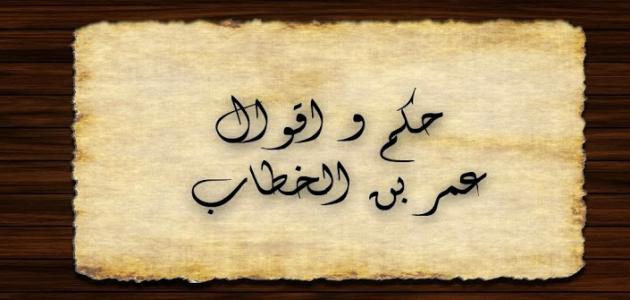 حكم و اقوال
عمر بن الخطاب